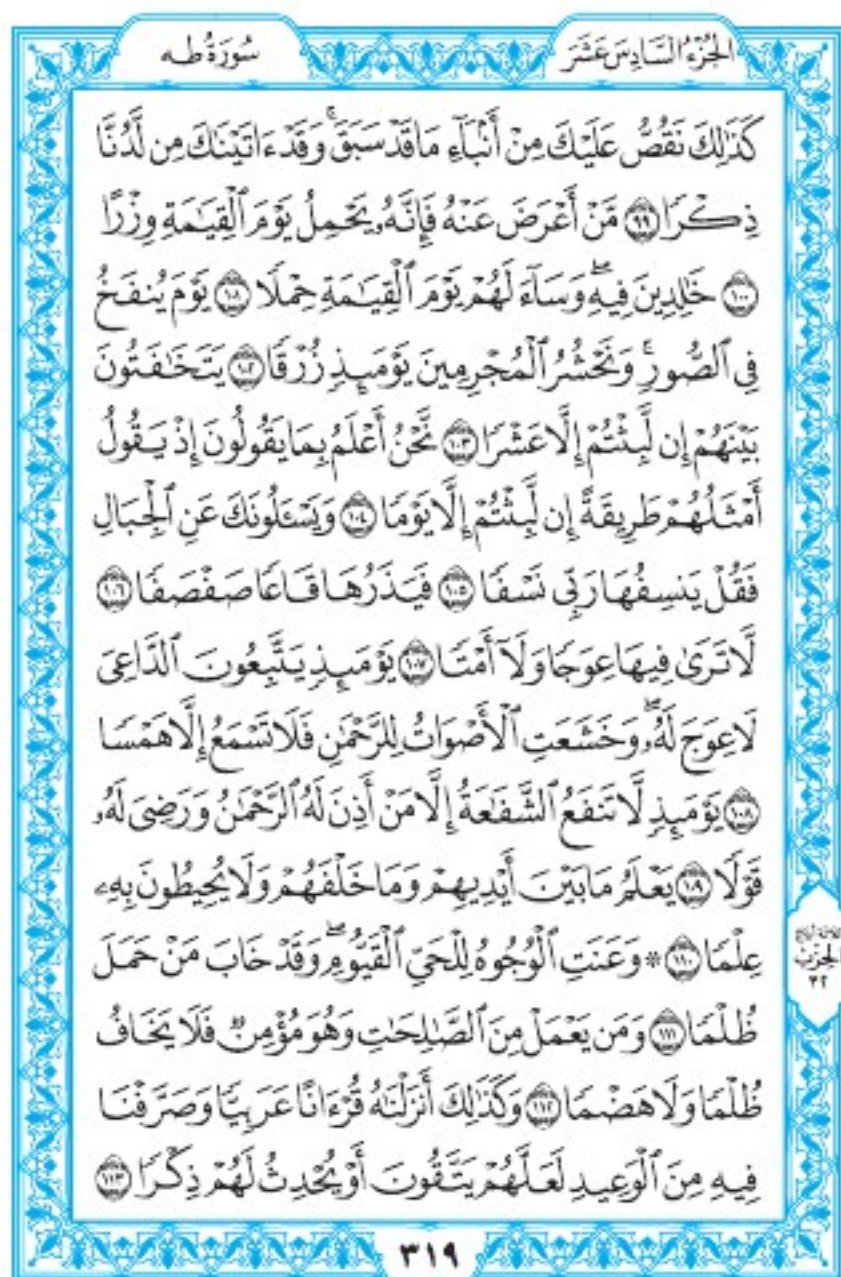 الجُزْءُ السَّادِسَ عَشَرَ
سُورَةُ طه
كَذَٰلِكَ نَقُصُّ عَلَيْكَ مِنْ أَنۢبَآءِ مَا قَدْ سَبَقَۚ وَقَدْ ءَاتَيْنَٰكَ مِن لَّدُنَّا
ذِكْرًا ٩٩ مَّنْ أَعْرَضَ عَنْهُ فَإِنَّهُۥ يَحْمِلُ يَوْمَ ٱلْقِيَٰمَةِ وِزْرًا
١٠٠ خَٰلِدِينَ فِيهِۖ وَسَآءَ لَهُمْ يَوْمَ ٱلْقِيَٰمَةِ حِمْلًا ١٠١ يَوْمَ يُنفَخُ
فِي ٱلصُّورِۚ وَنَحْشُرُ ٱلْمُجْرِمِينَ يَوْمَئِذٍ زُرْقًا ١٠٢ يَتَخَٰفَتُونَ
بَيْنَهُمْ إِن لَّبِثْتُمْ إِلَّا عَشْرًا ١٠٣ نَّحْنُ أَعْلَمُ بِمَا يَقُولُونَ إِذْ يَقُولُ
أَمْثَلُهُمْ طَرِيقَةً إِن لَّبِثْتُمْ إِلَّا يَوْمًا ١٠٤ وَيَسْـَٔلُونَكَ عَنِ ٱلْجِبَالِ
فَقُلْ يَنسِفُهَا رَبِّى نَسْفًا ١٠٥ فَيَذَرُهَا قَاعًا صَفْصَفًا ١٠٦
لَّا تَرَىٰ فِيهَا عِوَجًا وَلَآ أَمْتًا ١٠٧ يَوْمَئِذٍ يَتَّبِعُونَ ٱلدَّاعِىَ
لَا عِوَجَ لَهُۥۖ وَخَشَعَتِ ٱلْأَصْوَاتُ لِلرَّحْمَٰنِ فَلَا تَسْمَعُ إِلَّا هَمْسًا
١٠٨ يَوْمَئِذٍ لَّا تَنفَعُ ٱلشَّفَٰعَةُ إِلَّا مَنْ أَذِنَ لَهُ ٱلرَّحْمَٰنُ وَرَضِىَ لَهُۥ
قَوْلًا ١٠٩ يَعْلَمُ مَا بَيْنَ أَيْدِيهِمْ وَمَا خَلْفَهُمْ وَلَا يُحِيطُونَ بِهِۦ
عِلْمًا ١١٠ * وَعَنَتِ ٱلْوُجُوهُ لِلْحَىِّ ٱلْقَيُّومِۖ وَقَدْ خَابَ مَنْ حَمَلَ
ظُلْمًا ١١١ وَمَن يَعْمَلْ مِنَ ٱلصَّٰلِحَٰتِ وَهُوَ مُؤْمِنٌ فَلَا يَخَافُ
ظُلْمًا وَلَا هَضْمًا ١١٢ وَكَذَٰلِكَ أَنزَلْنَٰهُ قُرْءَانًا عَرَبِيًّا وَصَرَّفْنَا
فِيهِ مِنَ ٱلْوَعِيدِ لَعَلَّهُمْ يَتَّقُونَ أَوْ يُحْدِثُ لَهُمْ ذِكْرًا ١١٣
الحِزْبُ
٣٢
٣١٩